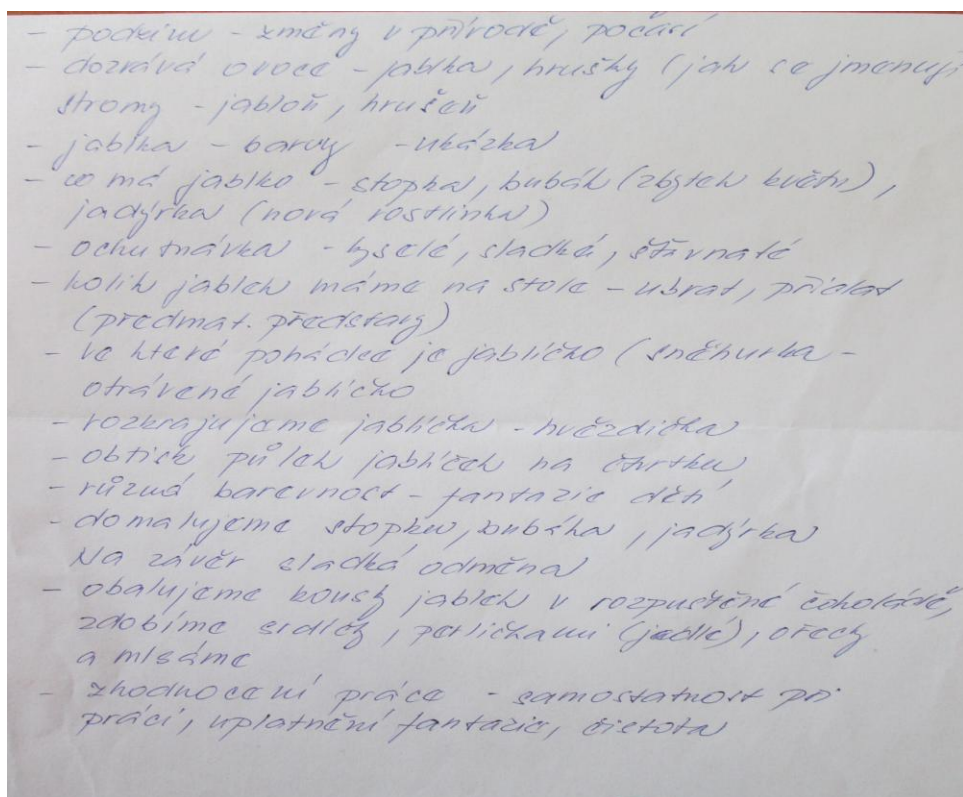 - podzim - změny v přírodě, počasí
- dozrává ovoce - jablka, hrušky (jak se jmenují
stromy - jabloň, hrušeň
- jablka - barvy - ukázka
- co má jablko - stopka, bubák (zbytek květu),
jadýrka (nová rostlinka)
- ochutnávka - kyselé, sladké, šťavnaté
- kolik jablek máme na stole - ubrat, přidat
(předmat. představy)
- ve které pohádce je jablíčko (sněhurka -
otrávené jablíčko
- rozkrajujeme jablíčka - hvězdička
- obtisk půlek jablíček na čtvrtku
- různá barevnost - fantazie dětí
- domalujeme stopku, bubáka, jadýrka
Na závěr sladká odměna
- obalujeme kousky jablek v rozpuštěné čokoládě,
zdobíme srdíčky, perličkami (jedlé), ořechy
a mlsáme
- zhodnocení práce - samostatnost při
práci, uplatnění fantazie, čistota